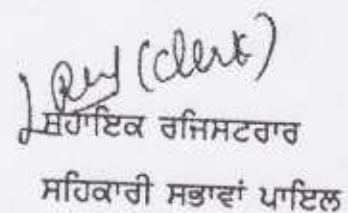 (Clerk)
ਸਹਾਇਕ ਰਜਿਸਟਰਾਰ
ਸਹਿਕਾਰੀ ਸਭਾਵਾਂ ਪਾਇਲ